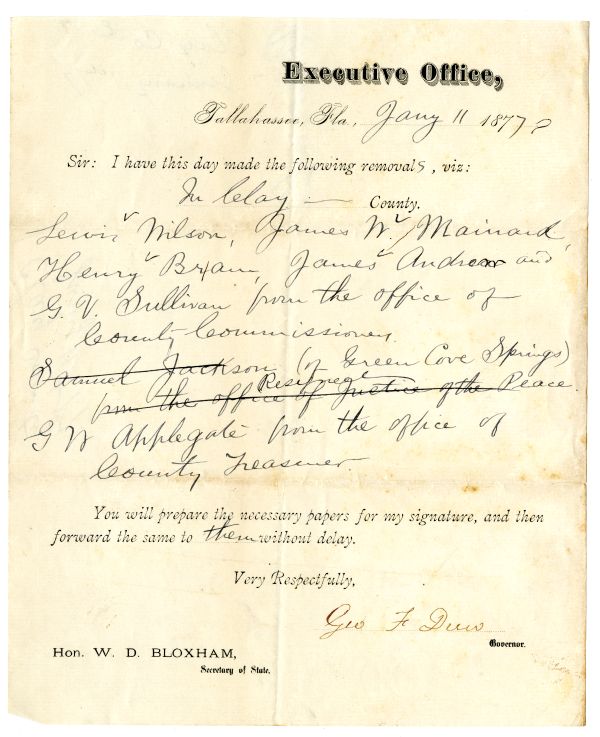 Executive Office,
Tallahassee, Fla., Jany 11 1877
Sir: I have this day made the following removals, viz:
In Clay County.
Lewis Wilson, James W. Mainard,
Henry Bryan, James Andrew and
G. V. Sullivan from the office of
County Commissioner.
Samuel Jackson (of Green Cove Springs)
Resigned
from the office of Justice of the Peace
G W Applegate from the office of
County Treasurer.
You will prepare the necessary papers for my signature, and then
forward the same to them without delay.
Very Respectfully,
Geo F Drew
Governor.
Hon. W. D. BLOXHAM,
Secretary of State.